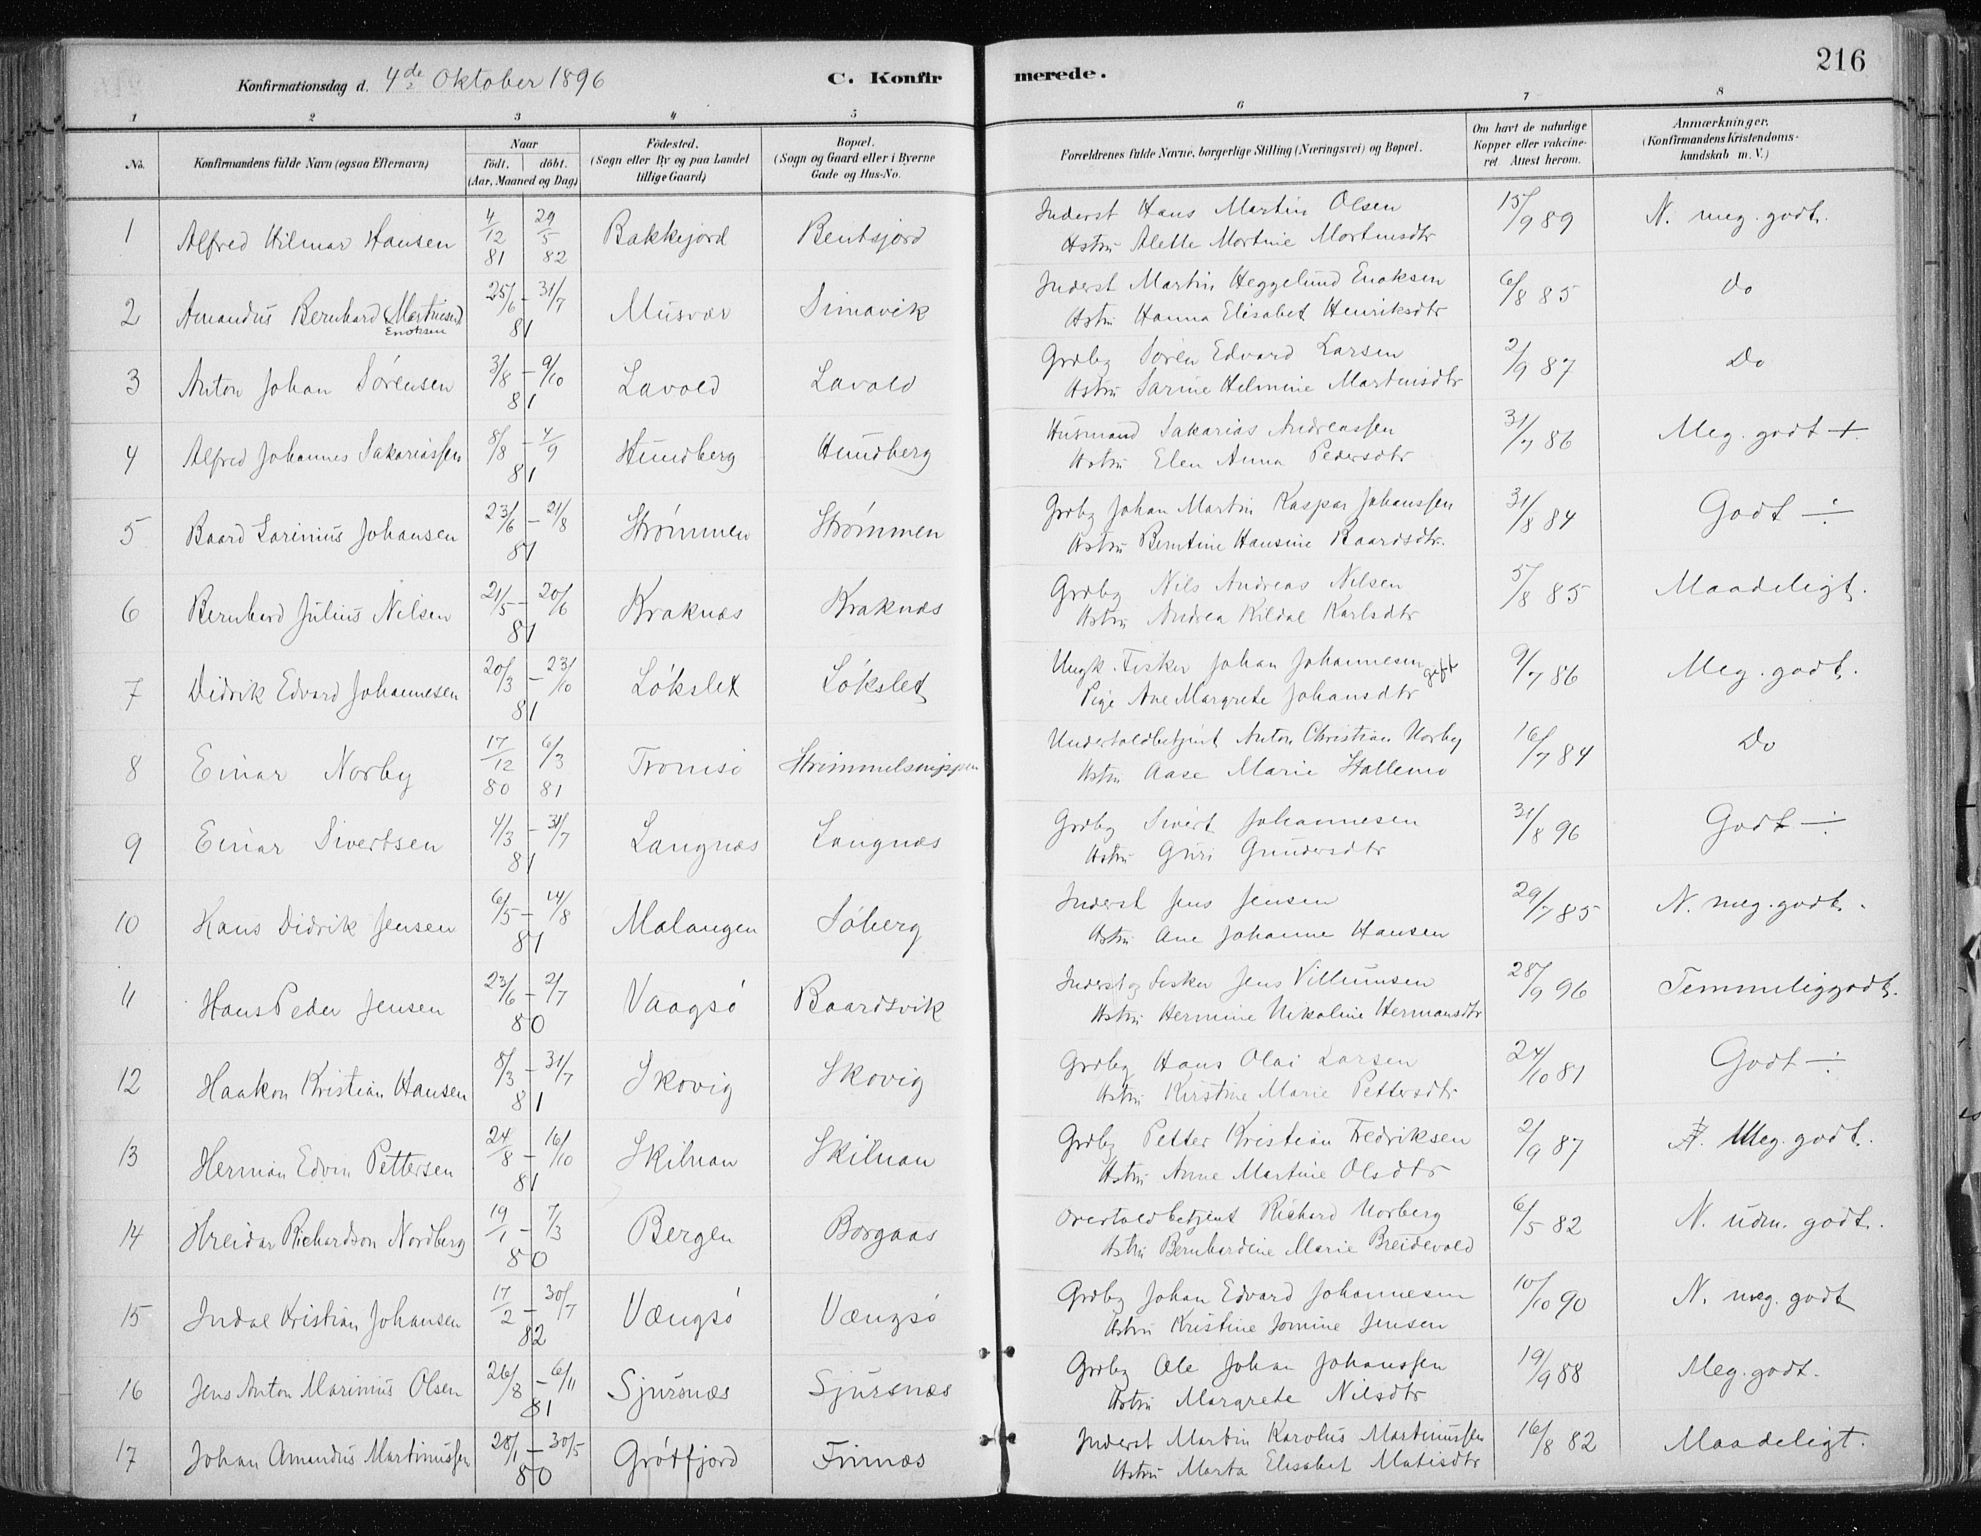 216
Konfirmationsdag d. 4de Oktober 1896 C. Konfirmerede.
1 2 3 4 5 6 7 8
No. Konfirmandens fulde Navn (ogsaa Efternavn) Naar födt. döbt. (Aar, Maaned og Dag) Födested. (Sogn eller By og paa Landet tillige Gaard) Bopæl. (Sogn og Gaard eller i Byerne Gade og Hus-No. Forældrenes fulde Navne, borgerlige Stilling (Næringsvei) og Bopæl. Om havt de naturlige Kopper eller vakcineret Attest herom. Anmærkninger. (Konfirmandens Kristendomskundskab m. V.)
1 Alfred Hilmar Hansen 4/12 81 29/5 82 Bakkejord Bentsjord Inderst Hans Martin Olsen 15/9 89 N. meg. godt.
Hstru Alette Martine Mortensdtr
2 Amandus Bernhard (Martinsen) Enoksen 25/6 - 31/7 81 Musvær Simavik Inderst Martin Heggelund Enoksen 6/8 85 Do
Hstru Hanna Elisabet Henriksdtr
3 Anton Johan Sörensen 3/8 - 9/10 81 Lavold Lavold Grdbg Sören Edvard Larsen 2/9 87 Do
Hstru Sarine Helmine Martinsdtr
4 Alfred Johannes Sakariassen 8/8 - 4/9 81 Hundberg Hundberg Husmand Sakarias Andreassen 31/7 86 Meg. godt +
Hstru Elen Anna Pedersdtr
5 Baard Larinius Johansen 23/6 - 21/8 81 Strømmen Strømmen Grdbg Johan Martin Kaspar Johanssen 31/8 84 Godt ÷
Hstru Berntine Hansine Baardsdtr.
6 Bernhard Julius Nilsen 21/5 - 20/6 81 Kraknæs Kraknæs Grdbg Nils Andreas Nilsen 5/8 85 Maadeligt.
Hstru Andrea Kildal Karlsdtr
7 Didrik Edvard Johannesen 20/3 - 23/10 81 Lökslet Lökslet Ungk. Fisker Johan Johannesen 9/7 86 Meg. godt.
Pige Ane Margrete Johansdtr gift
8 Einar Norby 17/12 80 6/3 81 Tromsö Undertoldbetjent Anton Christian Norby 16/7 84 Do
Hstru Aase Marie Hallemo
9 Einar Sivertsen 4/3 - 31/7 81 Langnæs Langnæs Grdbg Sivert Johannesen 31/8 96 Godt ÷
Hstru Guri Gundersdtr
10 Hans Didrik Jensen 6/5 - 14/8 81 Malangen Söberg Inderst Jens Jensen 29/7 85 N. meg. godt.
Hstru Ane Johanne Hansen
11 Hans Peder Jensen 23/6 - 2/7 80 Vaagsö Baardsvik Inderst og Fisker Jens Villumsen 28/9 96 Temmelig godt.
Hstru Hermine Nikoline Hermansdtr
12 Haakon Kristian Hansen 8/3 - 31/7 81 Skovig Skovig Grdbg Hans Olai Larsen 24/10 81 Godt ÷
Hstru Kirstine Marie Pettersdtr
13 Herman Edvin Pettersen 24/8 - 16/10 81 Skilnan Skilnan Grdbg Petter Kristian Fredriksen 2/9 87 Meg. godt.
Hstru Anne Martine Olsdtr
14 Hreidar Richardson Nordberg 19/1 - 7/3 80 Bergen Borgaas Overtoldbetjent Richard Norberg 6/5 82 N. udm. godt.
Hstru Bernhardine Marie Breidevold
15 Indal Kristian Johansen 17/2 - 30/7 82 Vængsö Vængsö Grdbg Johan Edvard Johannesen 10/10 90 N. meg. godt
Hstru Kristine Jomine Jensen
16 Jens Anton Marinius Olsen 26/8 - 6/11 81 Sjursnæs Sjursnæs Grdbg Ole Johan Johanssen 19/9 88 Meg. godt.
Hstru Margrete Nilsdtr
17 Johan Amandus Martinussen 28/1 - 30/5 80 Grötfjord Finnæs Inderst Martin Karolus Martinussen 16/8 82 Maadeligt.
Hstru Marta Elisabet Matisdtr